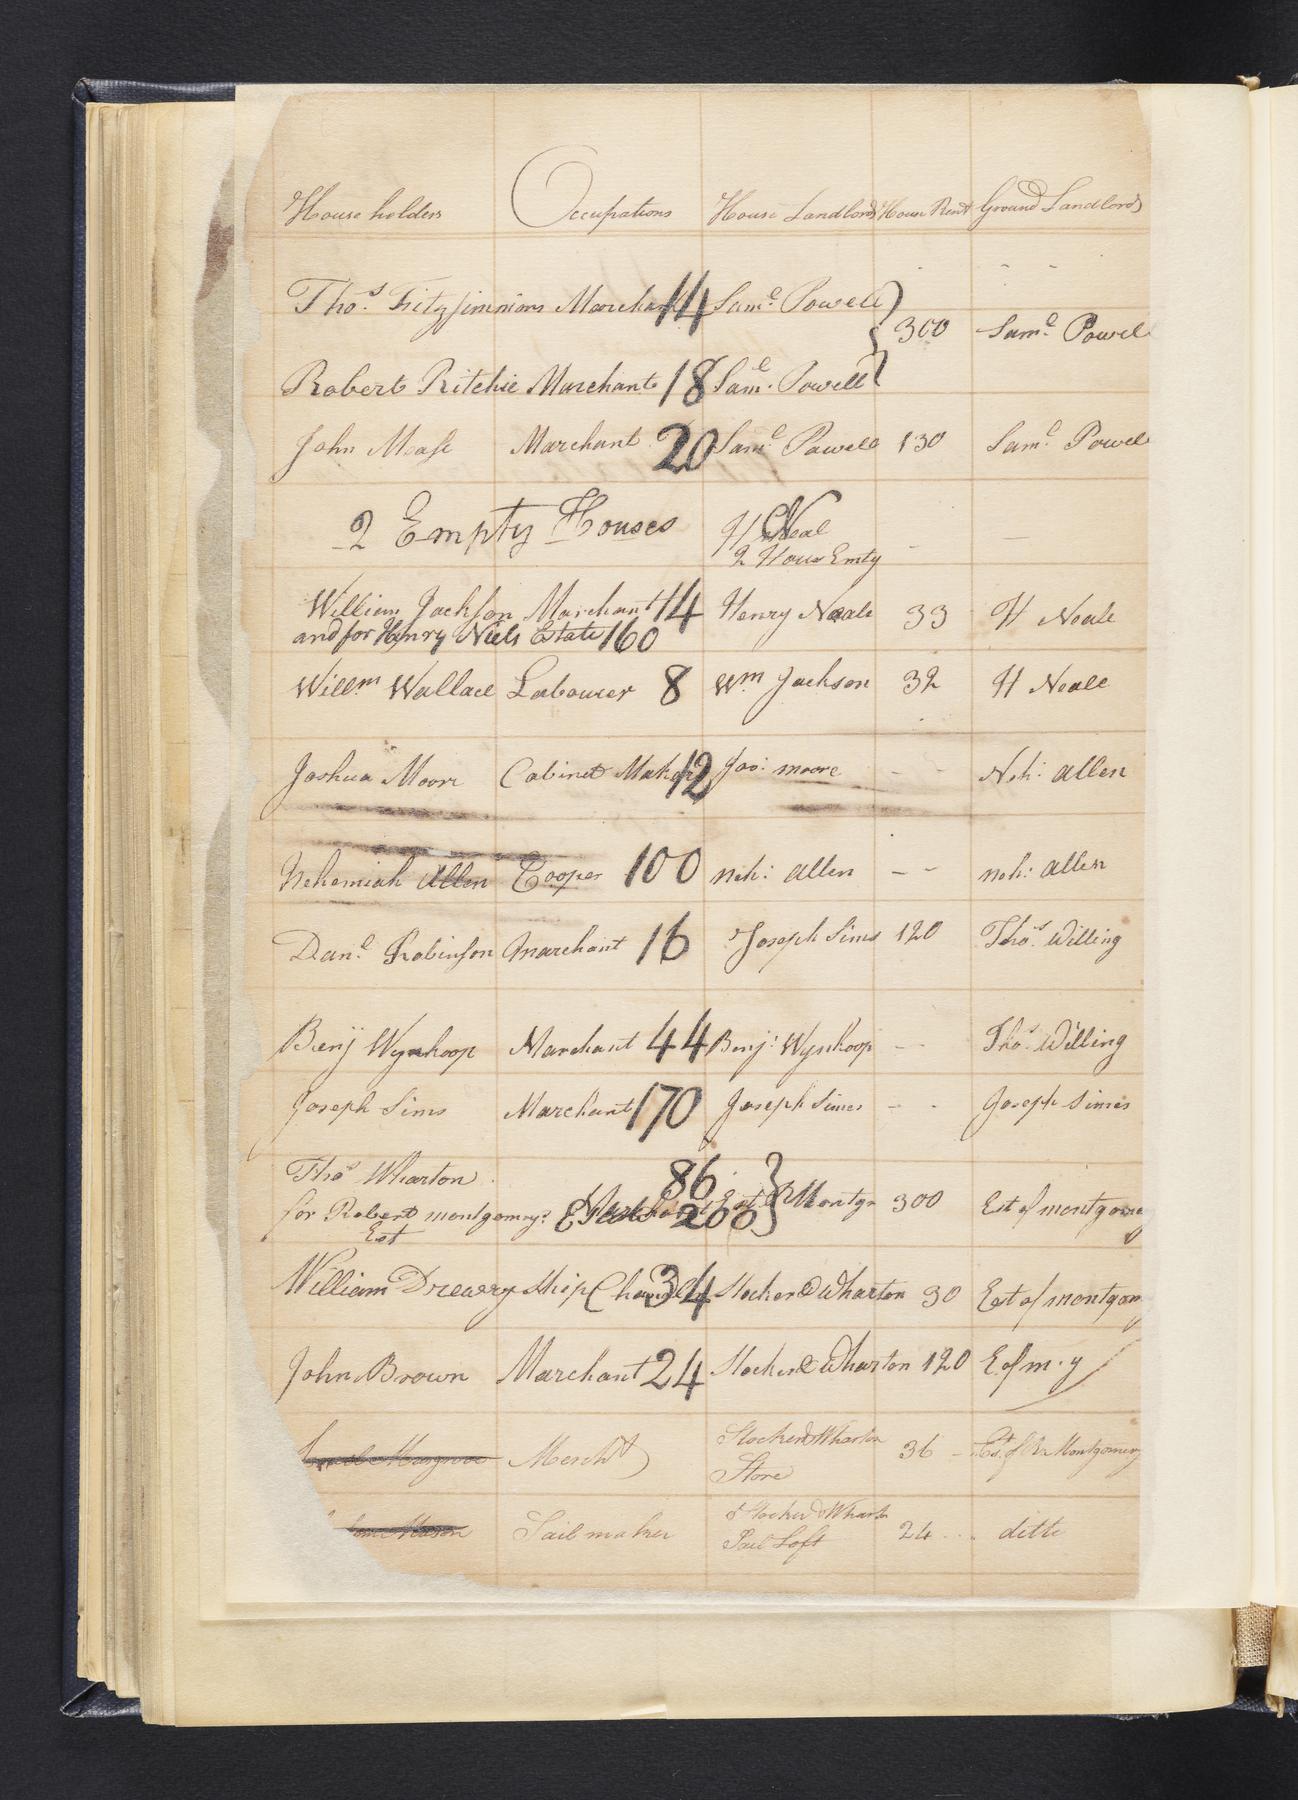 House holders Occupations House Landlords House Rent Ground Landlords
Thos. Fitzsimmions Marchant 14 Saml. Powell
} 300 Saml. Powel
Robert Ritchie Marchant 18 Saml. Powell
John Mease Marchant 20 Saml. Powell 130 Saml. Powel
2 Empty Houses H Neal
2 House Emty
William Jackson Marchant 14 Henry Neale 33 H Neale
and for Henry Niels Estate 160
Willm Wallace Labourer 8 Wm Jackson 32 H Neale
Joshua Moore Cabinet Maker 12 Jos: moore - - Neh: allen
Nehemiah Allen Cooper 100 neh: allen - - neh: allen
Danl. Robinson Marchant 16 Joseph Sims 120 Thos. Willing
Benj Wynkoop Marchant 44 Benj: Wynkoop - - Thos. Willing
Joseph Sims Marchant 170 Joseph Simes - - Joseph Simes
Thos Wharton 86
for Robert montgomrys Estate 200 } Est R Montgy 300 Est of montgomey
Est
William Drewry Ship Chandler 34 Stocker & Wharton 30 Est of montgom
John Brown Marchant 24 Stocker & Wharton 120 E of m. y
Mercht Stocker & Wharton 36 - Est. of R. Montgomery
Store
Mason Sail maker Stocker & Wharton 24 ... ditto
Sail Loft